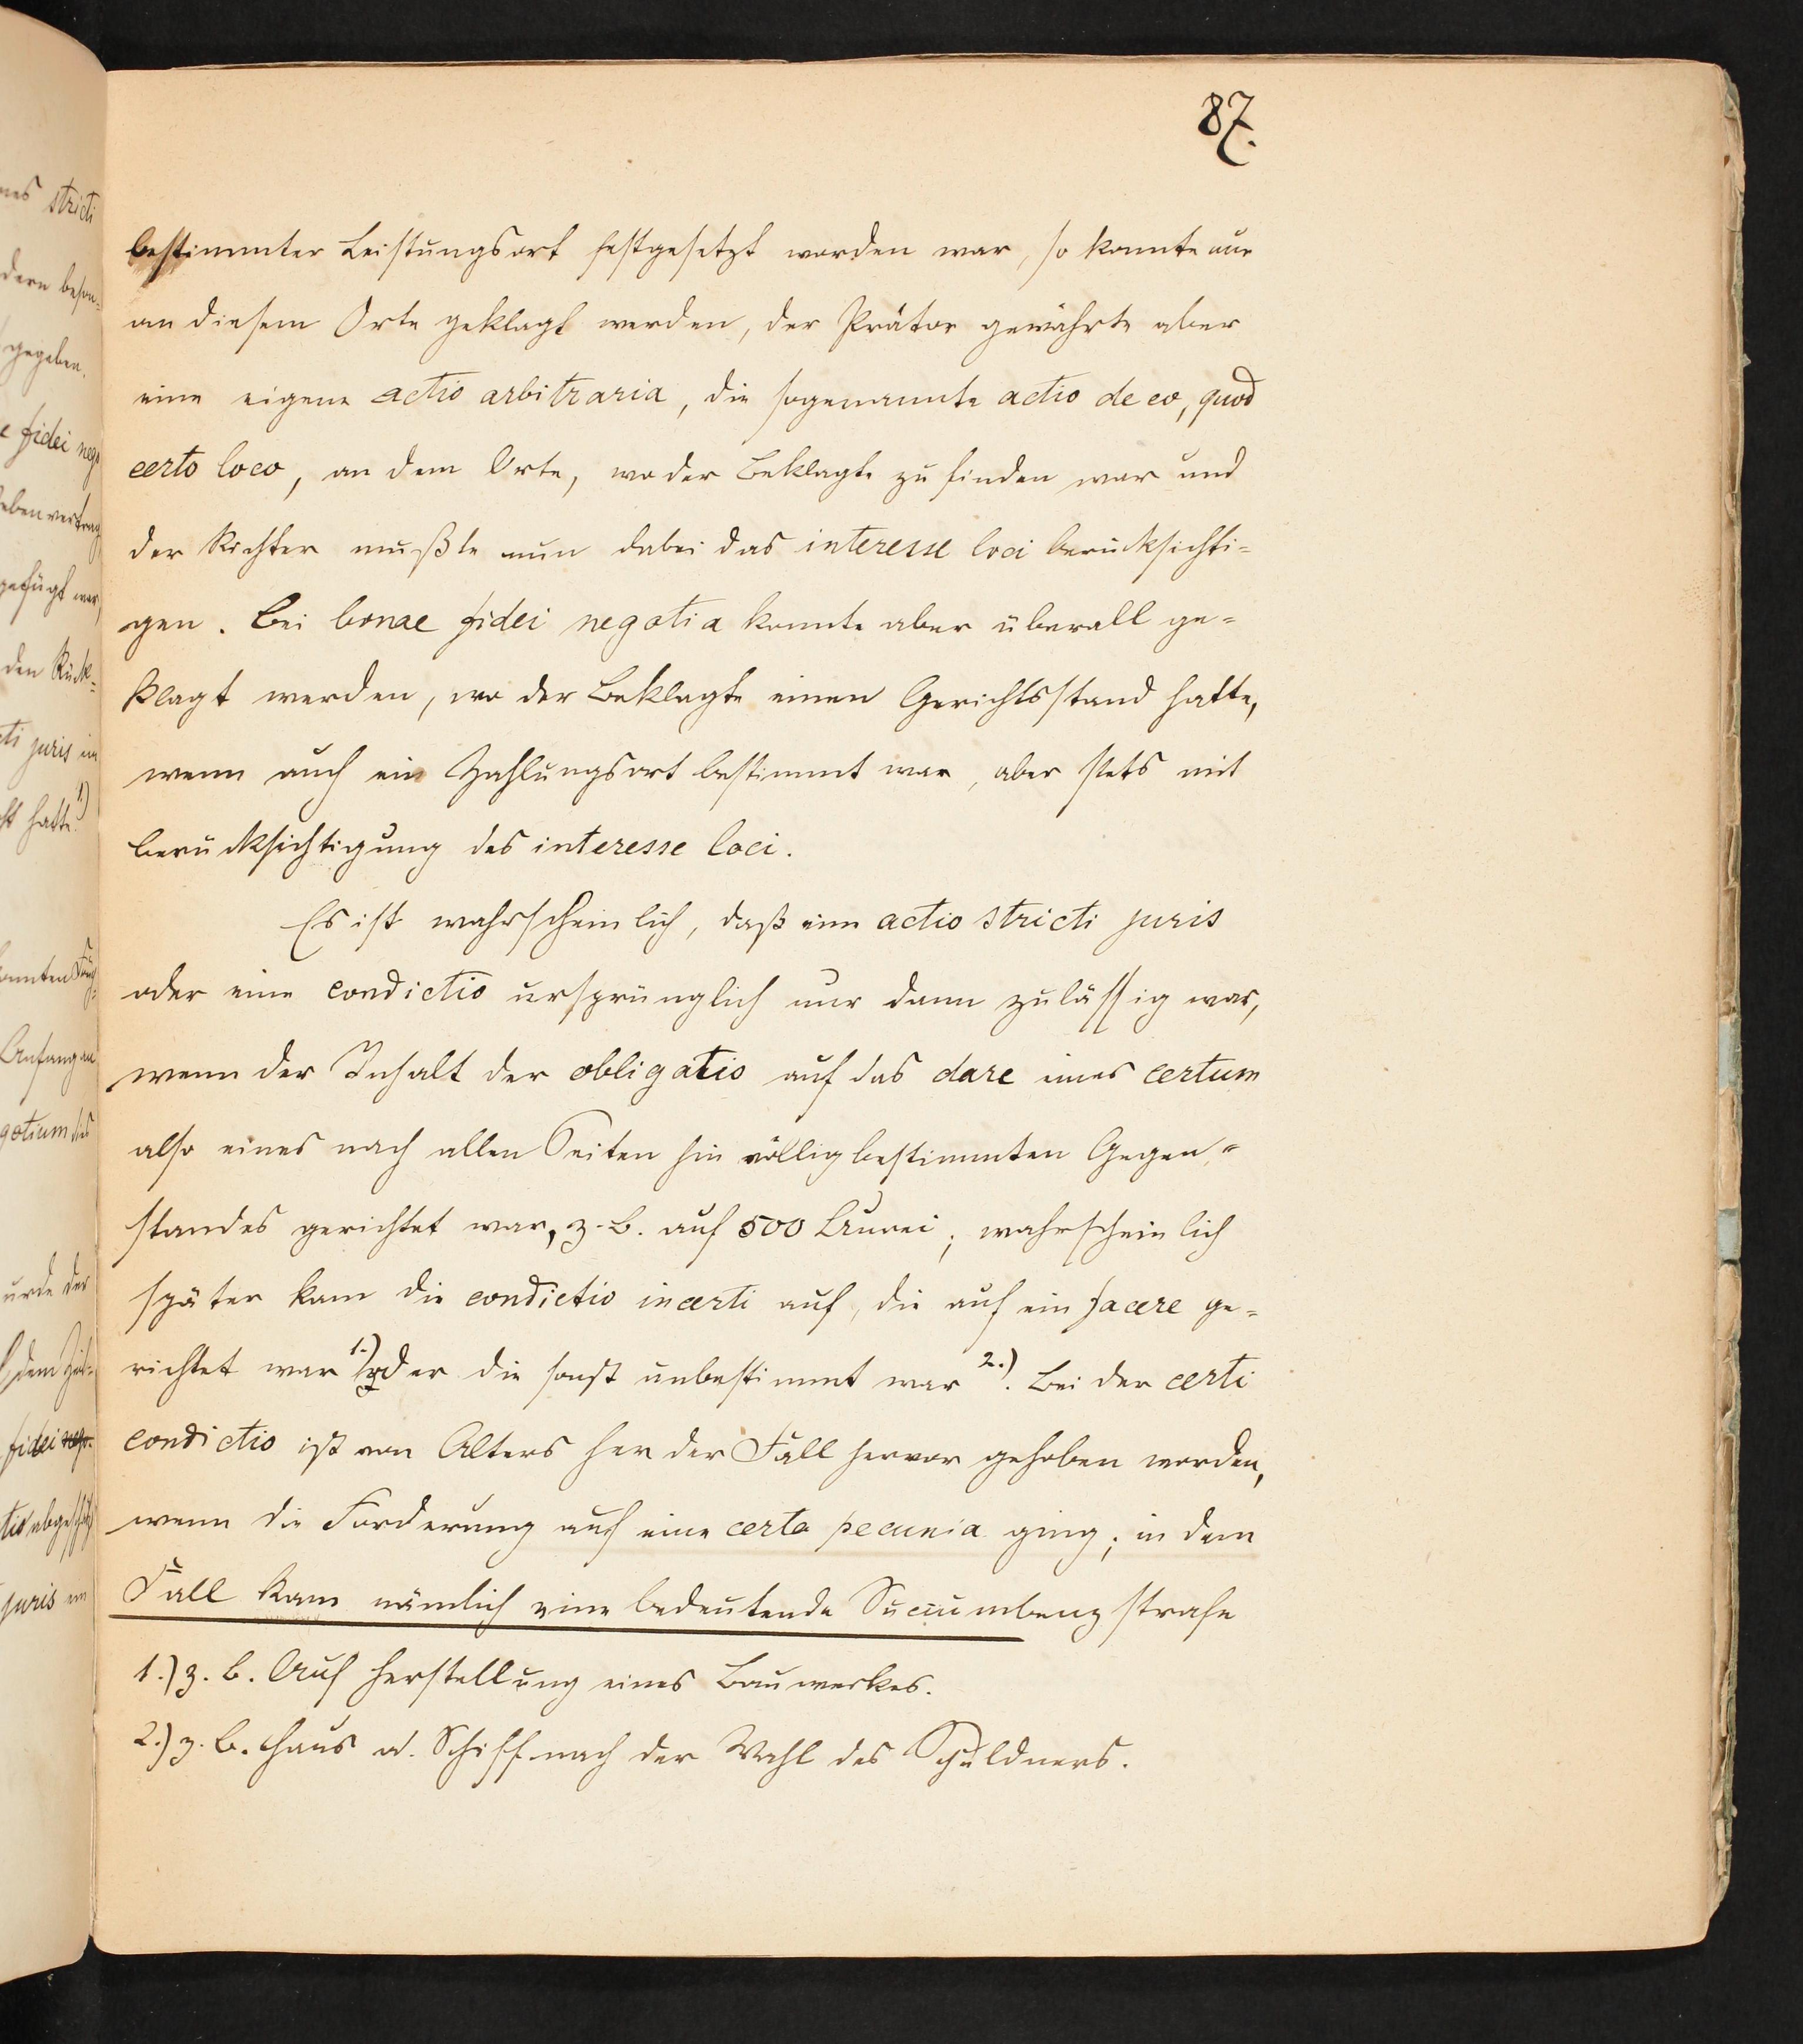 87.
bestimmter Leistungsort festgesetzt worden war, so konnte nur
an diesem Orte geklagt werden, der Prätor gewährte aber
eine eigene actio arbitraria, die sogenannte actio de eo, quod
certo loco, an dem Orte, wo der Beklagte zu finden war und
der Richter mußte nun dabei das interesse loci berücksichti=
gen. Bei bonae fidei negotia konnte aber überall ge=
klagt werden, wo der Beklagte einen Gerichtsstand hatte,
wenn auch ein Zahlungsort bestimmt war, aber stets mit
berücksichtigung des interesse loci.
Es ist wahrscheinlich, daß eine actio stricti juris
oder eine condictio ursprünglich nur dann zulässig war,
wenn der Inhalt der obligatio auf das dare eines certum
also eines nach allen Seiten hin völlig bestimmten Gegen=
standes gerichtet war, z. B. auf 500 Aurei; wahrscheinlich
später kam die condictio incerti auf, die auf ein facere ge=
richtet war 1.) oder die sonst unbestimmt war 2.). Bei der certi
condictio ist von Alters her der Fall hervor gehoben worden,
wenn die Forderung auf eine certa pecunia ging; in dem
Fall kam nämlich eine bedeutende Succumbenzstrafe
1.) z. B. Auf Herstellung eines Bauwerkes.
2.) z. B. Haus od. Schiff nach der Wahl des Schuldners.